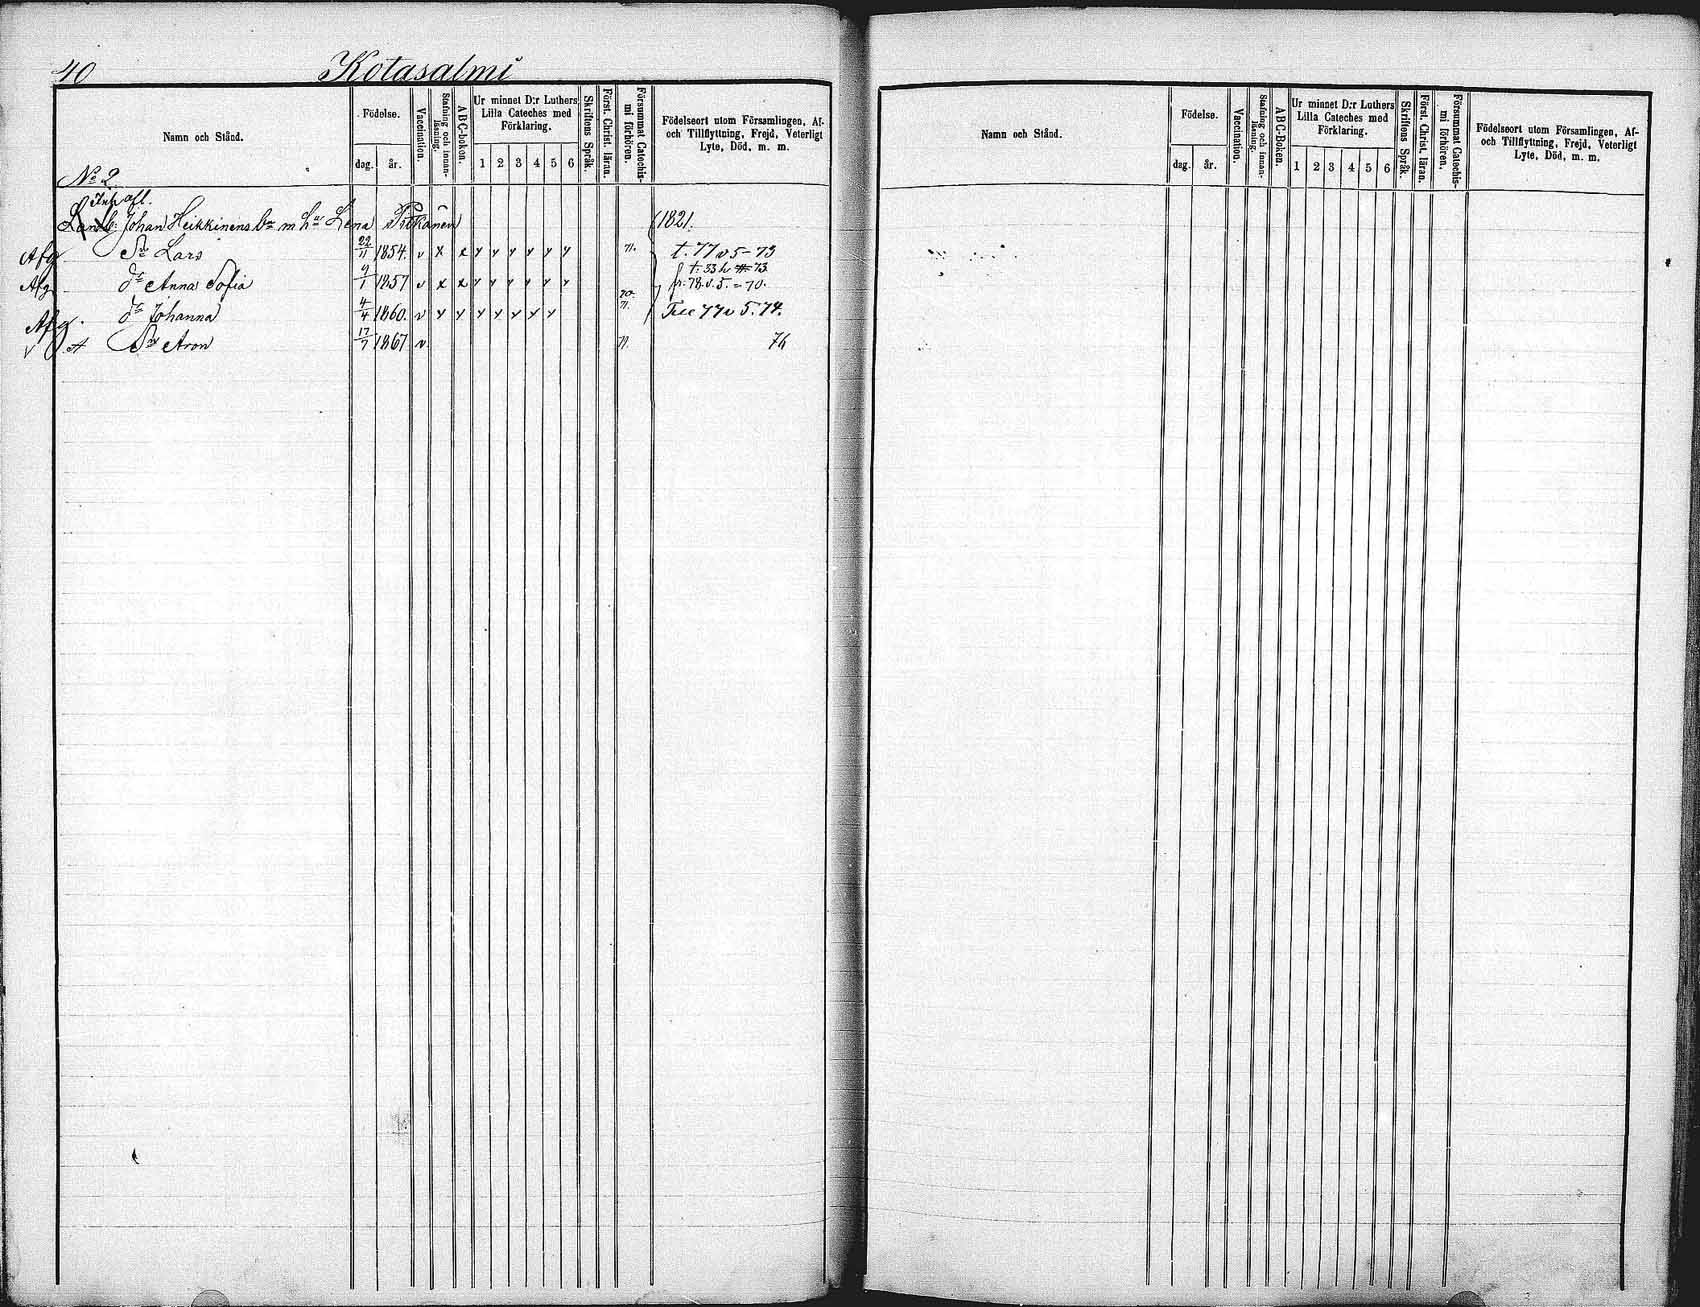 40 Kotasalmi
Namn och Stånd.
Födelse.
dag. år.
Vaccination.
Stafning och innan-läsning.
ABC-boken.
Ur minnet D:r Luthers
Lilla Cateches med
Förklaring.
1 2 3 4 5 6
Skriftens Språk.
Först. Christ. läran.
Försummat Catechis-
mi förhören.
Födelseort utom Församlingen, Af-
och Tillflyttning, Frejd, Veterligt
Lyte, Död, m. m.
No 2.
Inh. afl.
Landb. Johan Heikkinens bn m hu Lena Pitkänen (1821.
Afg Sn Lars 22/11 1854. v x x y y y y y y 71. t. 77 v 5 - 73
Afg dr Anna Sofia 9/1 1857 v x x y y y y y y t. 33 h 73
fr. 78. v. 5. = 70.
Afg. dr Johanna 4/4 1860. v y y y y y y y 70. 71. Till 77 v 5. 74.
v A Sn Aron 17/7 1867 v 71. 76
Namn och Stånd.
Födelse.
dag. år.
Vaccination.
Stafning och innan-
läsning.
ABC-Boken.
Ur minnet D:r Luthers
Lilla Cateches med
Förklaring.
1 2 3 4 5 6
Skriftens Språk.
Först. Christ. läran.
Försummat Catechis-
mi förhören.
Födelseort utom Församlingen, Af-
och Tillflyttning, Frejd, Veterligt
Lyte, Död, m. m.